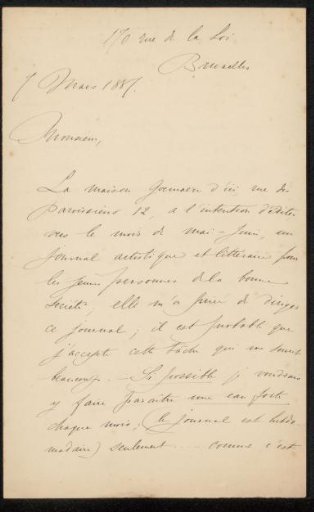 170 rue de la Loi
Bruxelles
7 Mars 1887.
Monsieur,
La maison d'ici rue des
Paroissiens 12, a l'intention d'éditer
vers le mois de mai-Juin, un
journal artistique et littéraire pour
les jeunes personnes de la bonne
société, elle m'a priée de diriger
ce journal; il est probable que
j'accepte cette tâche qui me sourit
beaucoup. Si possible je voudrais
y faire paraître une eau forte
chaque mois, (le journal est hebdo
madaire) seulement .... comme c'est